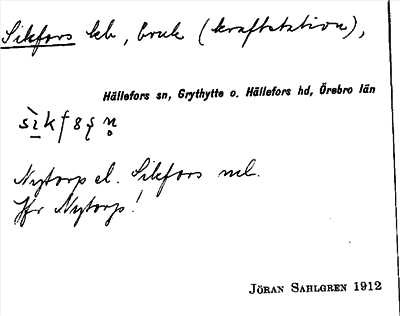 Sikfors hb, bruk (kraftstation),
Hällefors sn, Grythytte o. Hällefors hd, Örebro län
Nytorp el. Sikfors ml.
Jfr Nytorp!
JÖRAN SAHLGREN 1912